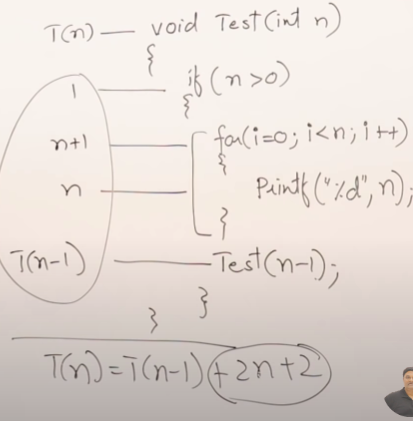 T(n) — void Test(int n)
{
1 — if (n>0)
{
n+1 — for(i=0; i<n; i++)
{
n — Printf("%d", n);
}
T(n-1) — Test(n-1);
}
}
T(n) = T(n-1) + 2n + 2